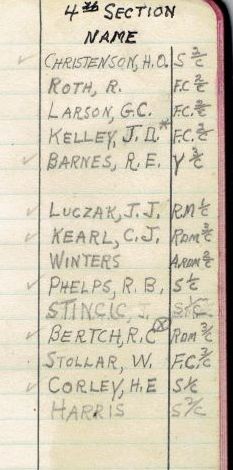 4th SECTION
NAME
✓ CHRISTENSON, H.O. S 2/c
ROTH, R. F.C. 2/c
LARSON, G.C. F.C. 2/c
KELLEY, J.D.* F.C. 2/c
✓ BARNES, R.E. Y 3/c
✓ LUCZAK, J.J. RM 1/c
✓ KEARL, C.J. RDM 3/c
WINTERS ARDM 2/c
✓ PHELPS, R.B. S 1/c
STINCIC, J. S 1/C
✓ BERTCH, R.C ⊗ RDM 3/c
STOLLAR, W. F.C. 3/c
✓ CORLEY, H.E S 1/c
HARRIS S 2/c